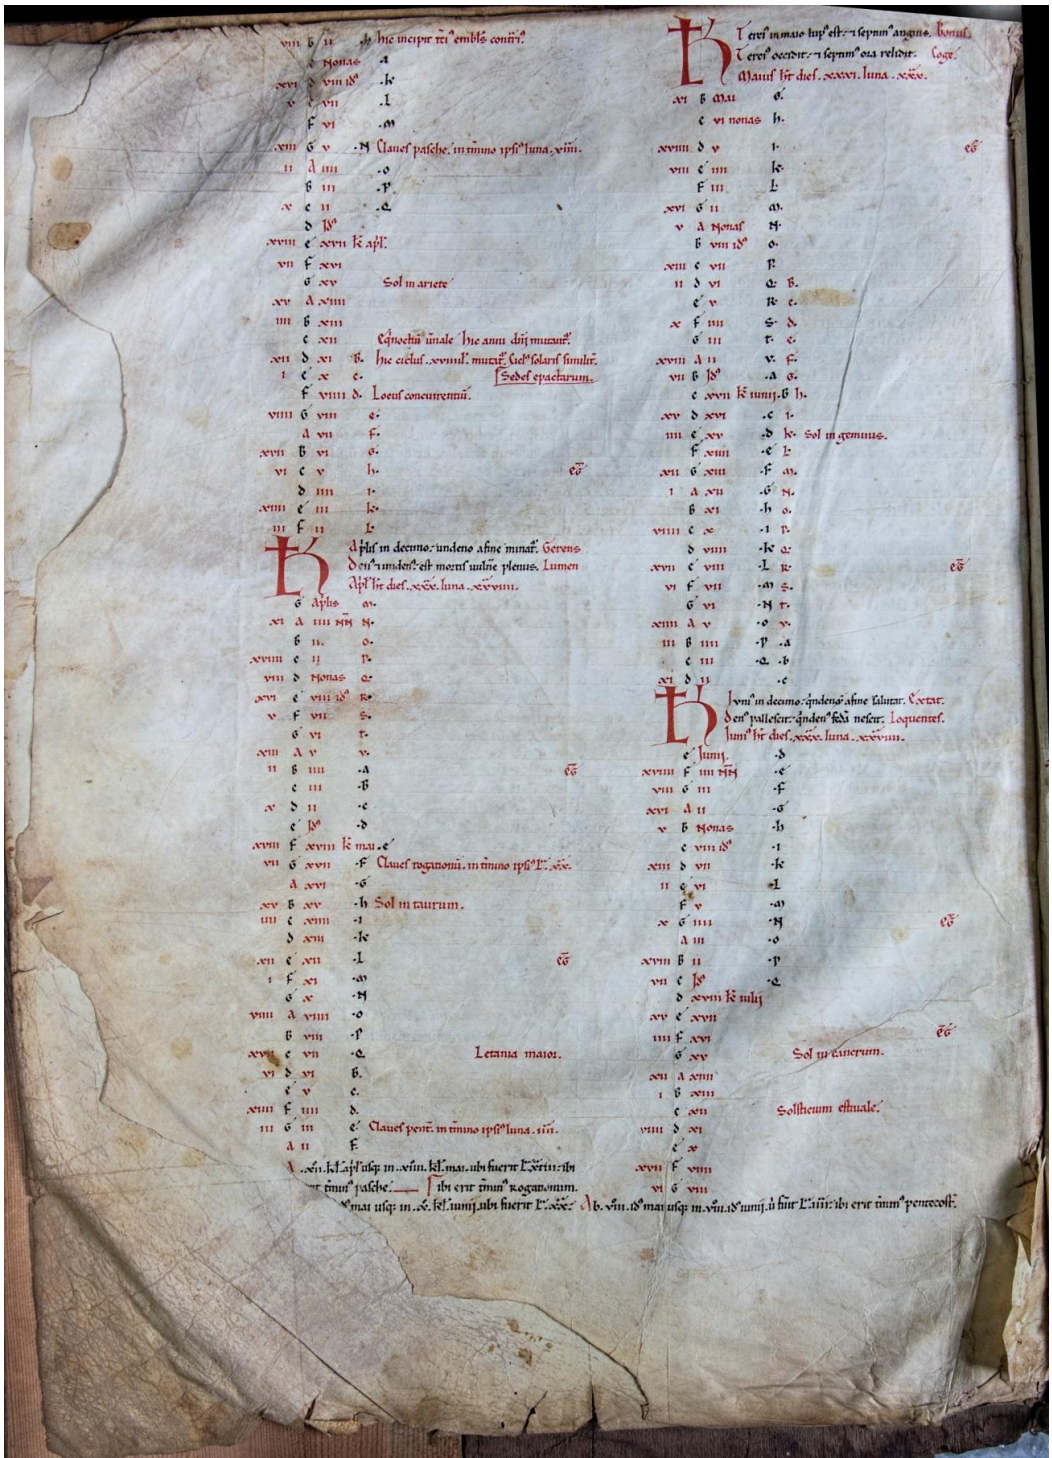 viii B ii .M hic incipit tci᷒ embls contri᷒.
c Nonas .a
xvi d viii id᷒ .k
v e vii .L
F vi .M
xiii G v .N Claues pasche. in tmino ipsi᷒ luna .xiiii.
ii A iiii .o
B iii .P
x c ii .Q
d Jd᷒
xviii e xvii kl apl.
vii F xvi
G xv Sol in ariete
xv A xiiii
iiii B xiii
c xii Eqnoctiu unale hic anni dni mutant.
xii d xi B. hic ciclus .xviiii. mutat. Cicl᷒ solaris similit.
i e x c. Sedes epactarum.
F viiii d. Locus concurrentiu.
viiii G viii e.
A vii F.
xvii B vi G.
vi c v h. eG
d iiii i.
xiiii e iii k.
iii F ii L.
KL Aplis in decimo. undeno a fine minat. Gerens
Den᷒ 7 unden᷒ est mortis uulne plenus. Lumen
Apl ht dies .xxx. luna .xxviiii.
G Aplis M.
xi A iiii NN N.
B iii o.
xviiii c ii P.
viii d Nonas Q.
xvi e viii id᷒ R.
v F vii S.
G vi t.
xiii A v v.
ii B iiii .a eG
c iii .B
x d ii .c
e Jd᷒ .d
xviii F xviii kl mai .e
vii G xvii .F Claues rogationu. in tmino ipsi᷒ L. xx.
A xvi .G
xv B xv .h Sol in taurum.
iiii c xiiii .i
d xiii .k
xii e xii .L eG
i F xi .M
G x .N
viiii A viiii .o
B viii .P
xvii c vii .Q Letania maior.
vi d vi B.
e v c.
xiiii F iiii d.
iii G iii e. Claues pent. in tmino ipsi᷒ luna .iiii.
A ii F.
A .xii. kl. apl usq; in .xiiii. kl. mai. ubi fuerit L. xiiii: ibi
tmin᷒ pasche. ibi erit tmin᷒ Rogationum.
mai usq; in .x. kl. iunii. ubi fuerit L. xx: Ab. viii. id᷒ mai usq; in .viii. id᷒ iunii. u fuit L. iiii: ibi erit tmin᷒ pentecost.
KL Terci᷒ in maio lup᷒ est. 7 septim᷒ anguis. bonus
Terci᷒ occidit. 7 septim᷒ ora relidit. Coge
Maius ht dies .xxxi. luna .xxx.
xi B Mai G.
c vi nonas h.
xviiii d v i. eG
viii e iiii k.
F iii L.
xvi G ii M.
v A Nonas N.
B viii id᷒ o.
xiii c vii P.
ii d vi Q. B.
e v R. c.
x F iiii S. d.
G iii t. e.
xviii A ii v. F.
vii B Jd᷒ .a G.
c xvii kl iunii .B h.
xv d xvi .c i.
iiii e xv .d k. Sol in geminis.
F xiiii .e L.
xii G xiii .F M.
i A xii .G N.
B xi .h o.
viiii c x .i P.
d viiii .k Q.
xvii e viii .L R. eG
vi F vii .M S.
G vi .N t.
xiiii A v .o v.
iii B iiii .P .a
c iii .Q .b
xi d ii .c
KL Juni᷒ in decimo. qndeno a fine salutat. Extat.
Den᷒ pallescit. qnden᷒ feda nescit. Loquentes.
Juni᷒ ht dies .xxx. luna .xxviiii.
e Junii. .d
xviiii F iiii NN .e
viii G iii .F
xvi A ii .G
v B Nonas .h
c viii id᷒ .i
xiii d vii .k
ii e vi .L
F v .M
x G iiii .N eG
A iii .o
xviii B ii .P
vii c Jd᷒ .Q
d xviii kl iulij
xv e xvii
iiii F xvi eG
G xv Sol in cancrum.
xii A xiiii
i B xiii
c xii Solsticium estiuale.
viiii d xi
e x
xvii F viiii
vi G viii